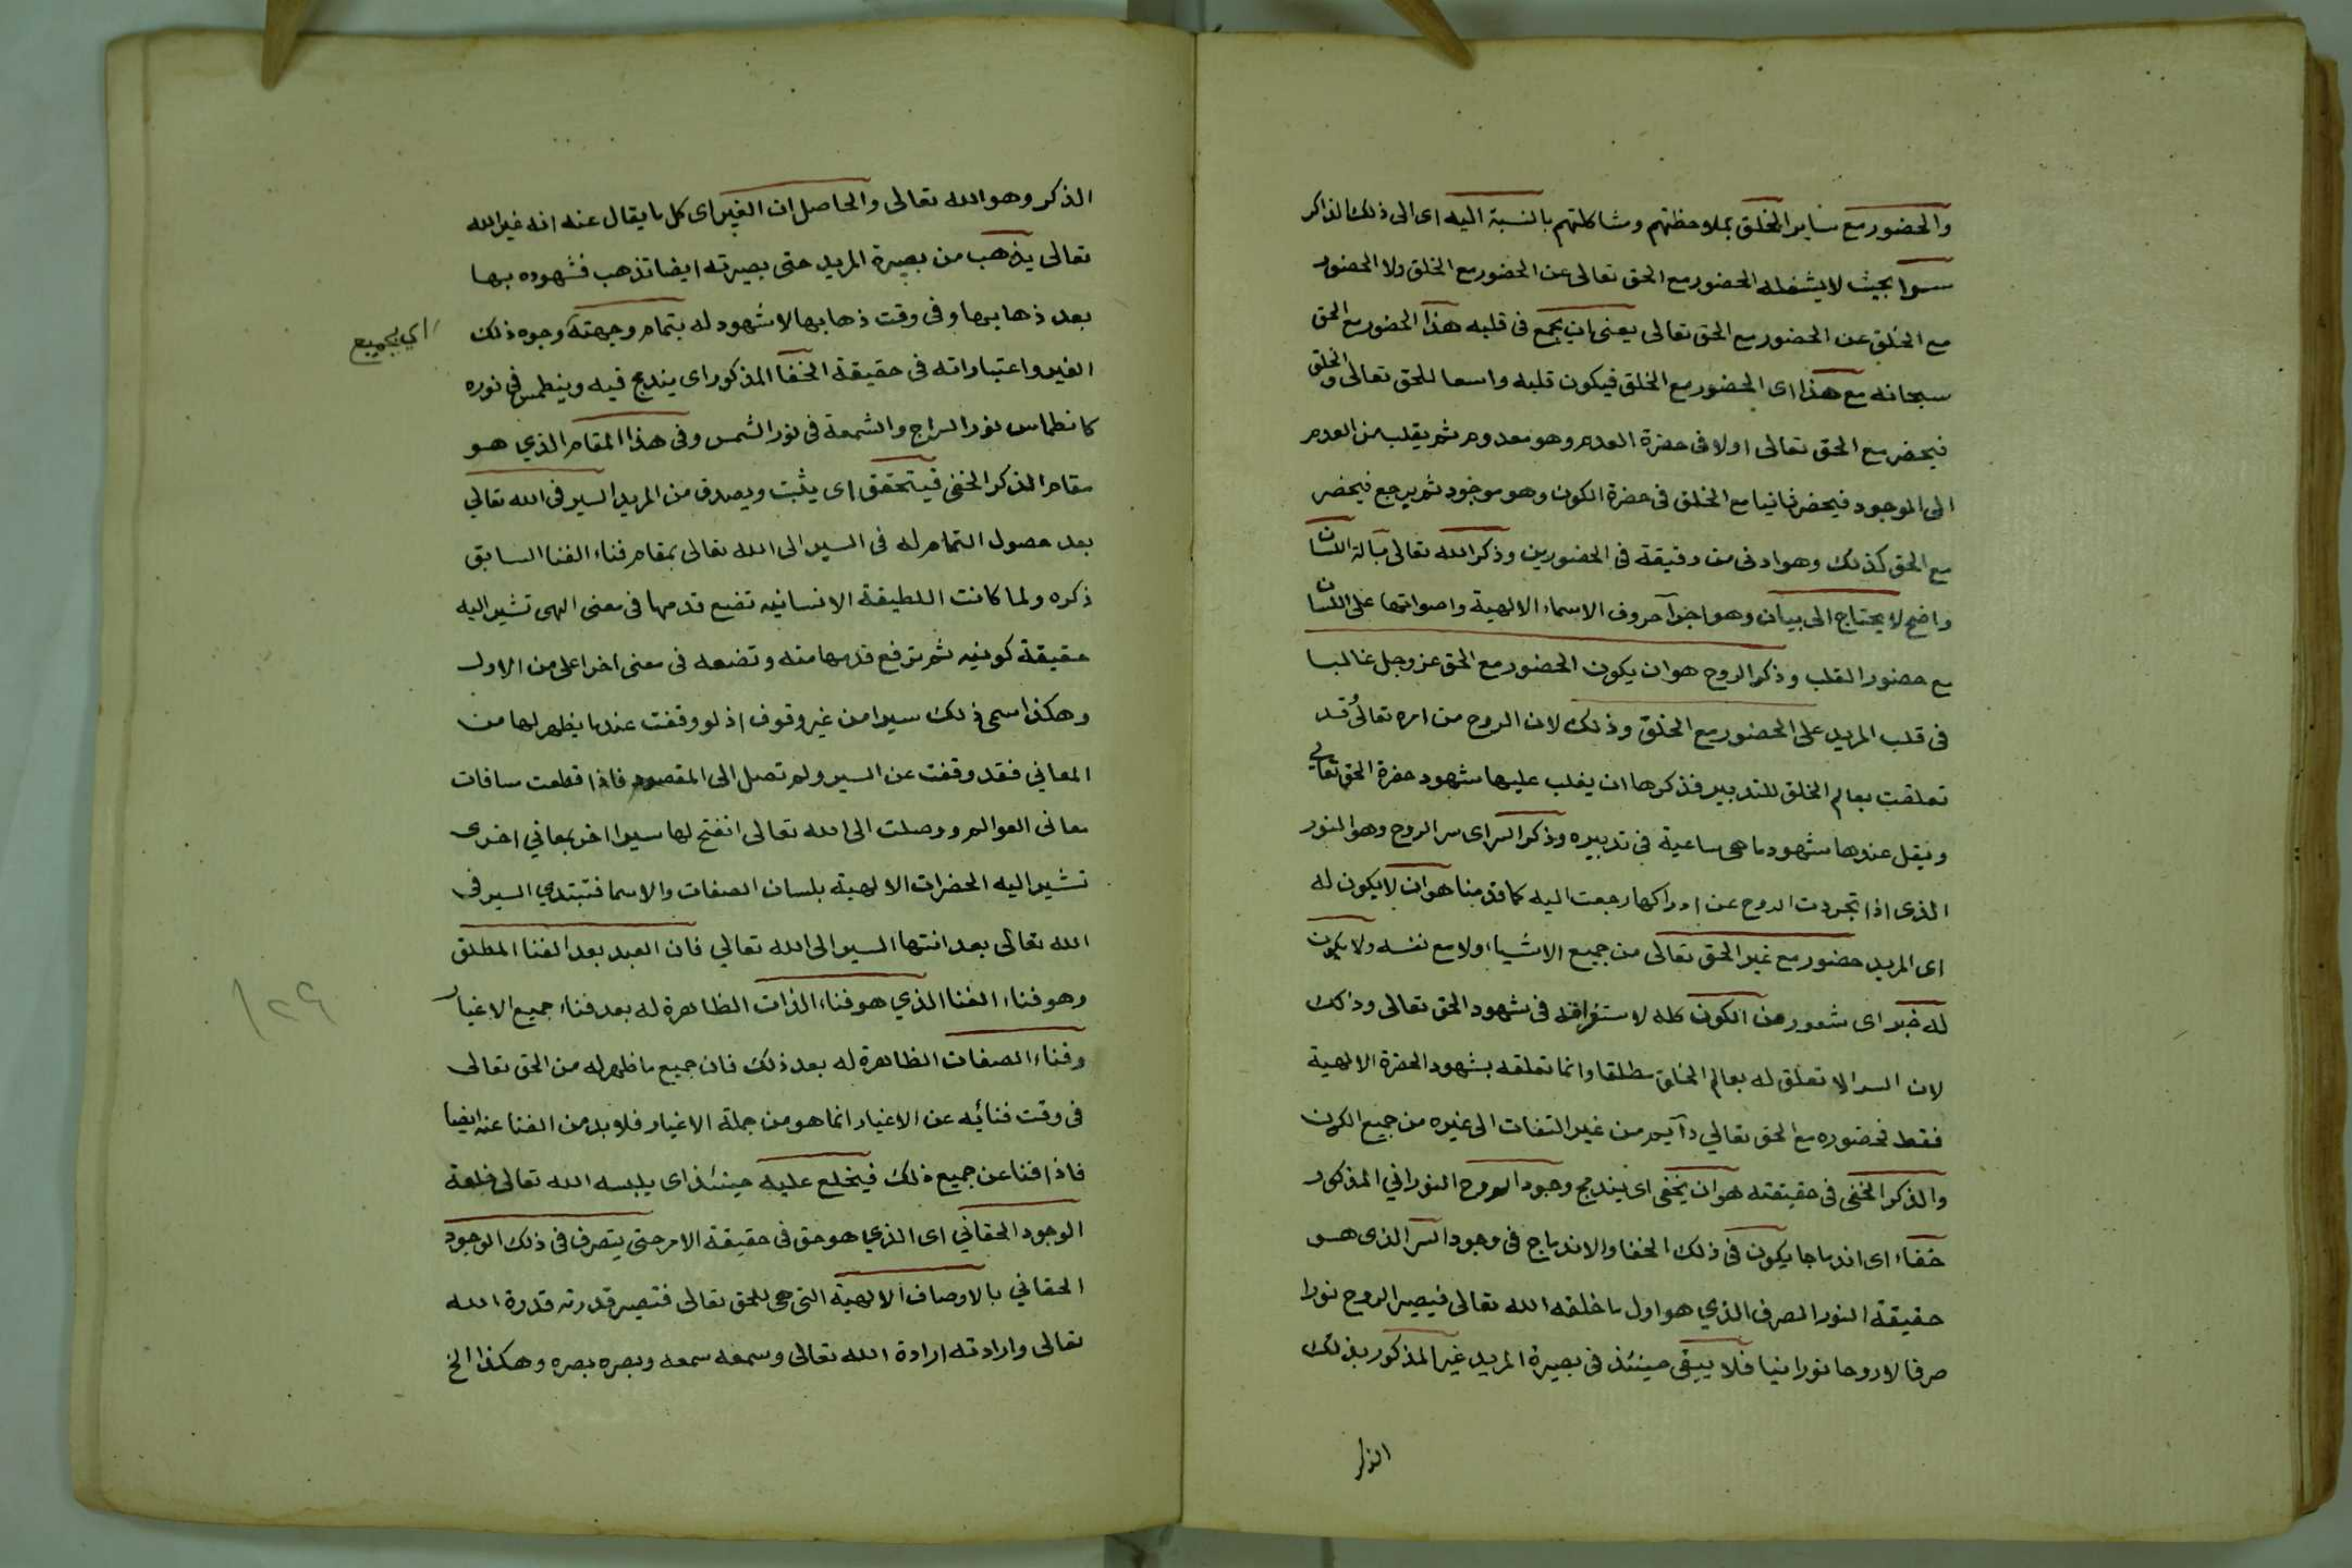 والحضور مع ساير الخلق بملاحظتهم ومشاكلتهم بالنسبة اليه اى الى ذلك الذاكر
سوا بحيث لا يشغله الحضور مع الحق تعالى عن الحضور مع الخلق ولا الحضور
مع الخلق عن الحضور مع الحق تعالى يعنى ان يجمع فى قلبه هذا الحضور مع الحق
سبحانه مع هذا اى الحضور مع الخلق فيكون قلبه واسعا للحق تعالى والخلق
فيحضر مع الحق تعالى اولا فى حضرة العدم وهو معدوم ثم يقلب من العدم
الى الموجود فيحضر ثانيا مع الخلق فى حضرة الكون وهو موجود ثم يرجع فيحضر
مع الحق كذلك وهو ادنى من دقيقة فى الحضورين وذكر الله تعالى بآلة اللسان
واضح لا يحتاج الى بيان وهو اجرآ حروف الاسماء الالهية واصواتها على اللسان
مع حضور القلب وذكر الروح هو ان يكون الحضور مع الحق عز وجل غالبا
فى قلب المريد على الحضور مع الخلق وذلك لان الروح من امره تعالى قد
تعلقت بعالم الخلق للتدبير فذكرها ان يغلب عليها شهود حضرة الحق تعالى
ويقل عندها شهود ما هى ساعية فى تدبيره وذكر السر اى سر الروح وهو النور
الذى اذا تجردت الروح عن ادراكها رجعت اليه كما قدمنا هو ان لا يكون له
اى المريد حضور مع غير الحق تعالى من جميع الاشياء ولا مع نفسه ولا يكون
له خبر اى شعور من الكون كله لاستغراقه فى شهود الحق تعالى وذلك
لان السر لا تعلق له بعالم الخلق مطلقا وانما تعلقه بشهود الحضرة الالهية
فقط فحضوره مع الحق تعالي دآيم من غير التفات الى غيره من جميع الكون
والذكر الخفى فى حقيقته هو ان يخفى اى يندمج وجود الروح النوراني المذكور
خفاء اى اندماجا يكون فى ذلك الخفا والاندماج فى وجود السر الذى هو
حقيقة النور الصرف الذي هو اول ما خلقه الله تعالى فيصير الروح نورا
صرفا لا روحا نورانيا فلا يبقى حينئذ فى بصيرة المريد غير المذكور بذلك
الذكر
الذكر وهو الله تعالى والحاصل ان الغير اى كل ما يقال عنه انه غير الله
تعالى يذهب من بصيرة المريد حتى بصيرته ايضا تذهب فشهوده بها
بعد ذهابها وفى وقت ذهابها لا شهود له بتمام وجهته وجوه ذلك
اي بجميع
الغير واعتباراته فى حقيقة الخفا المذكور اى يندمج فيه وينطمس فى نوره
كانطماس نور السراج والشمعة فى نور الشمس وفى هذا المقام الذي هو
مقام الذكر الخفى فيتحقق اى يثبت ويصدق من المريد السير فى الله تعالي
بعد حصول التمام له فى السير الى الله تعالى بمقام فناء الفنا السابق
ذكره ولما كانت اللطيفة الانسانيه تضع قدمها فى معنى الهى تشير اليه
حقيقة كونيه ثم ترفع قدمها منه وتضعه فى معنى اخر اعلى من الاول
وهكذا سمى ذلك سيرا من غير وقوف اذ لو وقفت عند ما يظهر لها من
المعاني فقد وقفت عن السير ولم تصل الى المقصود فاذا قطعت مسافات
معانى العوالم ووصلت الى الله تعالى انفتح لها سير اخر بمعاني اخرى
تشير اليه الحضرات الالهية بلسان الصفات والاسما فتبتدي السير فى
الله تعالى بعد انتها السير الى الله تعالي فان العبد بعد الفنا المطلق
وهو فناء الفنا الذي هو فناء الذات الظاهرة له بعد فناء جميع الاغيار
وفناء الصفات الظاهرة له بعد ذلك فان جميع ما ظهر له من الحق تعالى
١٢٩
فى وقت فنائه عن الاغيار انما هو من جملة الاغيار فلا بد من الفنا عنه ايضا
فاذا فنا عن جميع ذلك فيخلع عليه حينئذ اى يلبسه الله تعالى خلعة
الوجود الحقاني اى الذي هو حق فى حقيقة الامر حتى يتصرف فى ذلك الوجود
الحقاني بالاوصاف الالهية التى هى للحق تعالى فتصير قدرته قدرة الله
تعالى وارادته ارادة الله تعالى وسمعه سمعه وبصره بصره وهكذا الخ